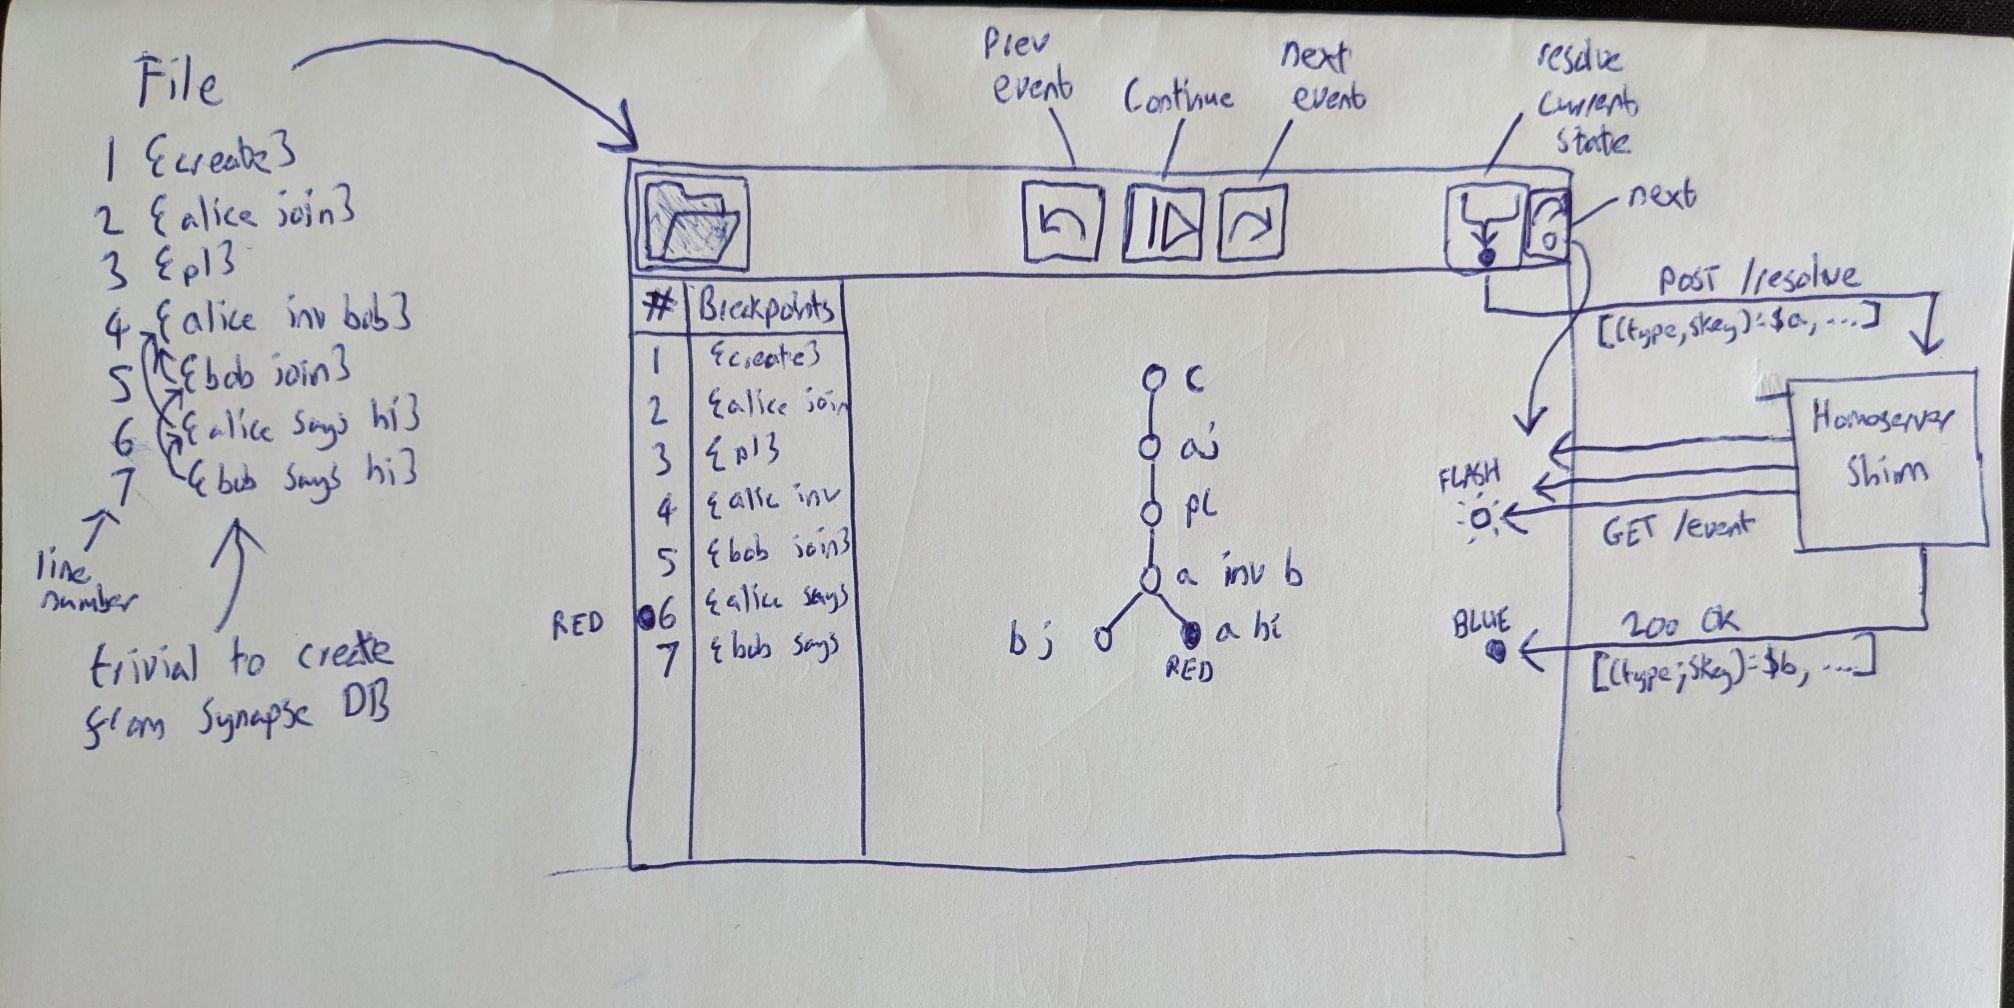 File
1 {create}
2 {alice join}
3 {pl}
4 {alice inv bob}
5 {bob join}
6 {alice says hi}
7 {bob says hi}
line
number
trivial to create
from Synapse DB
Prev
event
Continue
next
event
resolve
current
state
next
# Breakpoints
1 {create}
2 {alice join
3 {pl}
4 {alic inv
5 {bob join}
RED 6 {alice says
7 {bob says
c
aj
pl
a inv b
bj
a hi
RED
POST /resolve
[(type,skey)=$a, ...]
Homeserver
Shim
FLASH
GET /event
BLUE
200 OK
[(type,skey)=$b, ...]